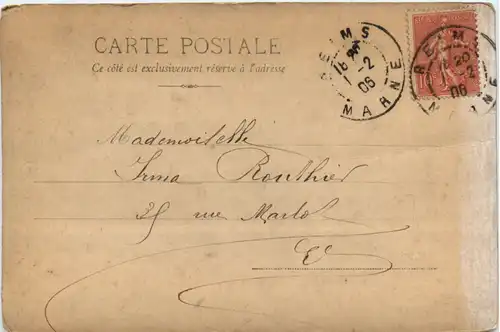 CARTE POSTALE
Ce côté est exclusivement réservé à l'adresse
REIMS
1-2
06
MARNE
REIMS
20
2
06
Mademoiselle
Irma Routhier
rue Marlot